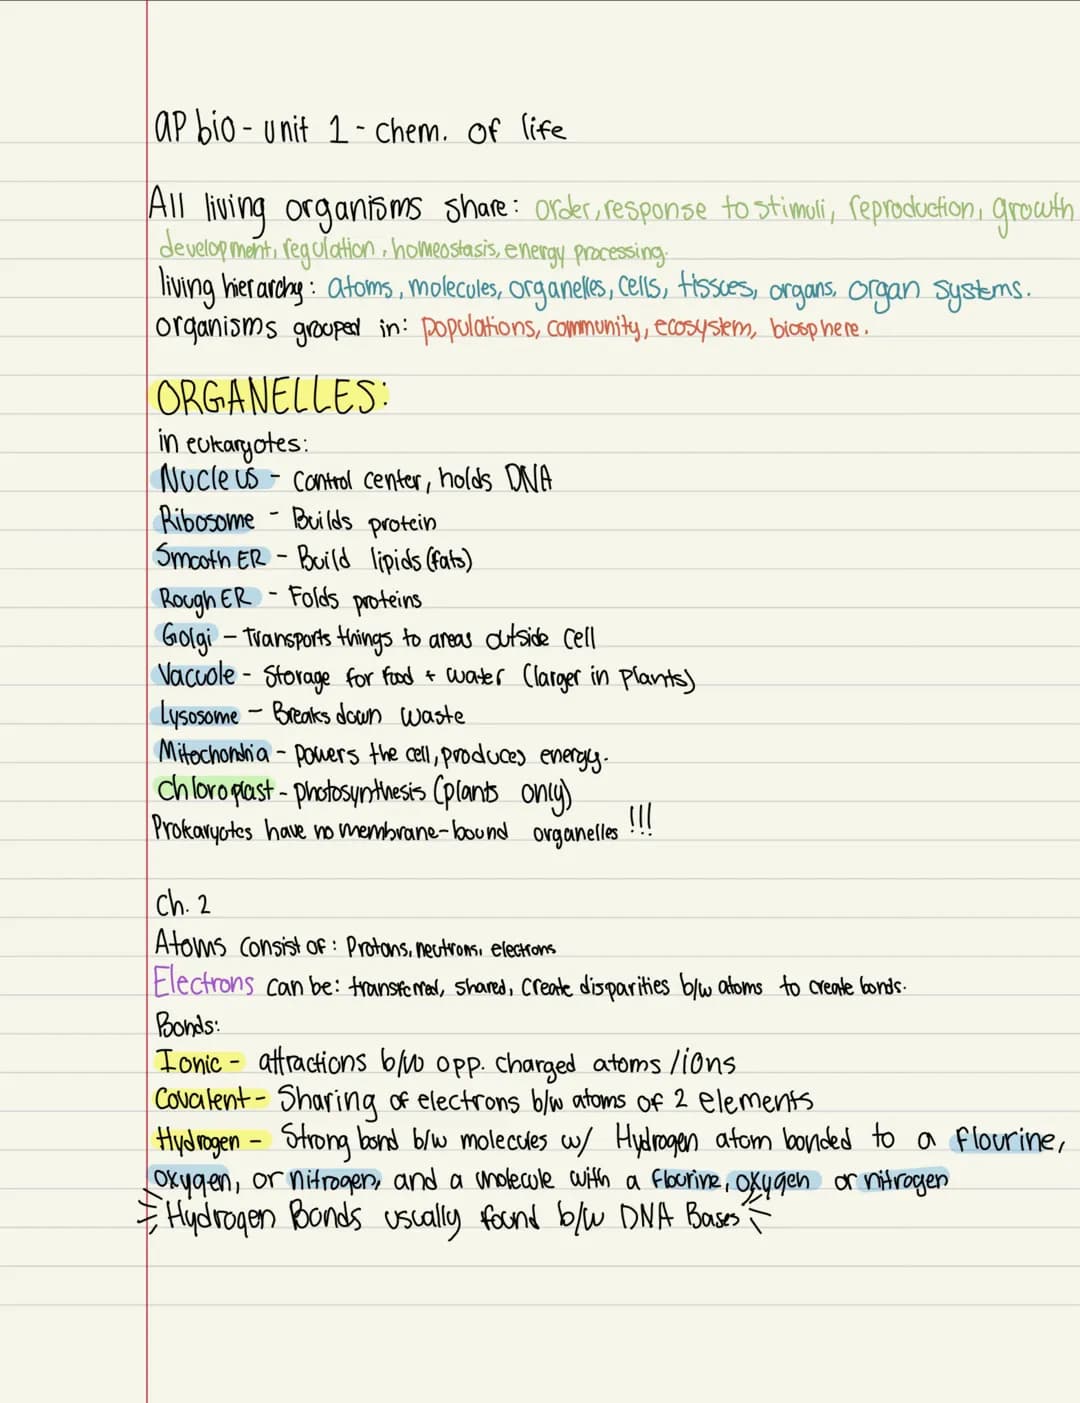 AP bio - unit 1 - chem. of life
All living organisms share: order, response to stimuli, reproduction, growth
development, regulation, homeostasis, energy processing.
living hierarchy: atoms, molecules, organelles, cells, tissues, organs, organ systems.
organisms grouped in: populations, community, ecosystem, biosphere.
ORGANELLES:
in eukaryotes:
Nucleus - Control center, holds DNA
Ribosome - Builds protein
Smooth ER - Build lipids (fats)
Rough ER - Folds proteins
Golgi - Transports things to areas outside cell
Vacuole - Storage for food + water (larger in plants)
Lysosome - Breaks down waste
Mitochondria - powers the cell, produces energy.
Chloroplast - photosynthesis (plants only)
Prokaryotes have no membrane-bound organelles !!!
Ch. 2
Atoms consist of: Protons, neutrons, electrons
Electrons can be: transferred, shared, create disparities b/w atoms to create bonds.
Bonds:
Ionic - attractions b/w opp. charged atoms / ions
Covalent - Sharing of electrons b/w atoms of 2 elements
Hydrogen - Strong bond b/w molecules w/ Hydrogen atom bonded to a flourine,
oxygen, or nitrogen, and a molecule with a flourine, oxygen or nitrogen
Hydrogen Bonds usually found b/w DNA Bases